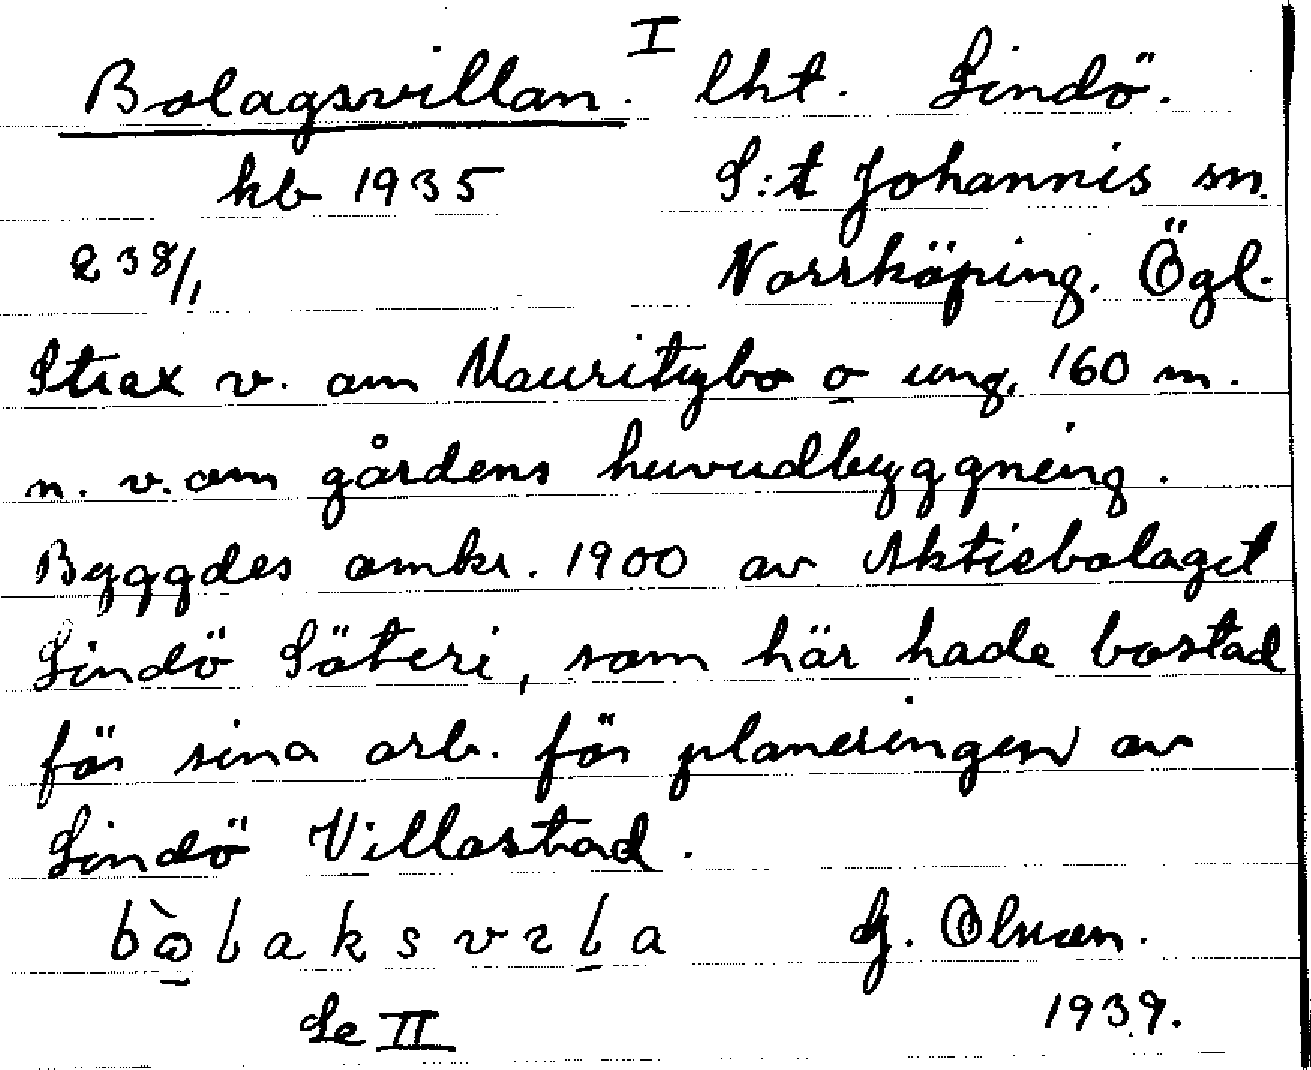 I
Bolagsvillan. lht. Lindö.
kb 1935 S:t Johannis sn.
238/1 Norrköping. Ögl.
Strax v. om Mauritzbo o ung. 160 m.
n. v. om gårdens huvudbyggning.
Byggdes omkr. 1900 av Aktiebolaget
Lindö Säteri, som här hade bostad
för sina arb. för planeringen av
Lindö Villastad.
G. Olsson.
Se II 1939.